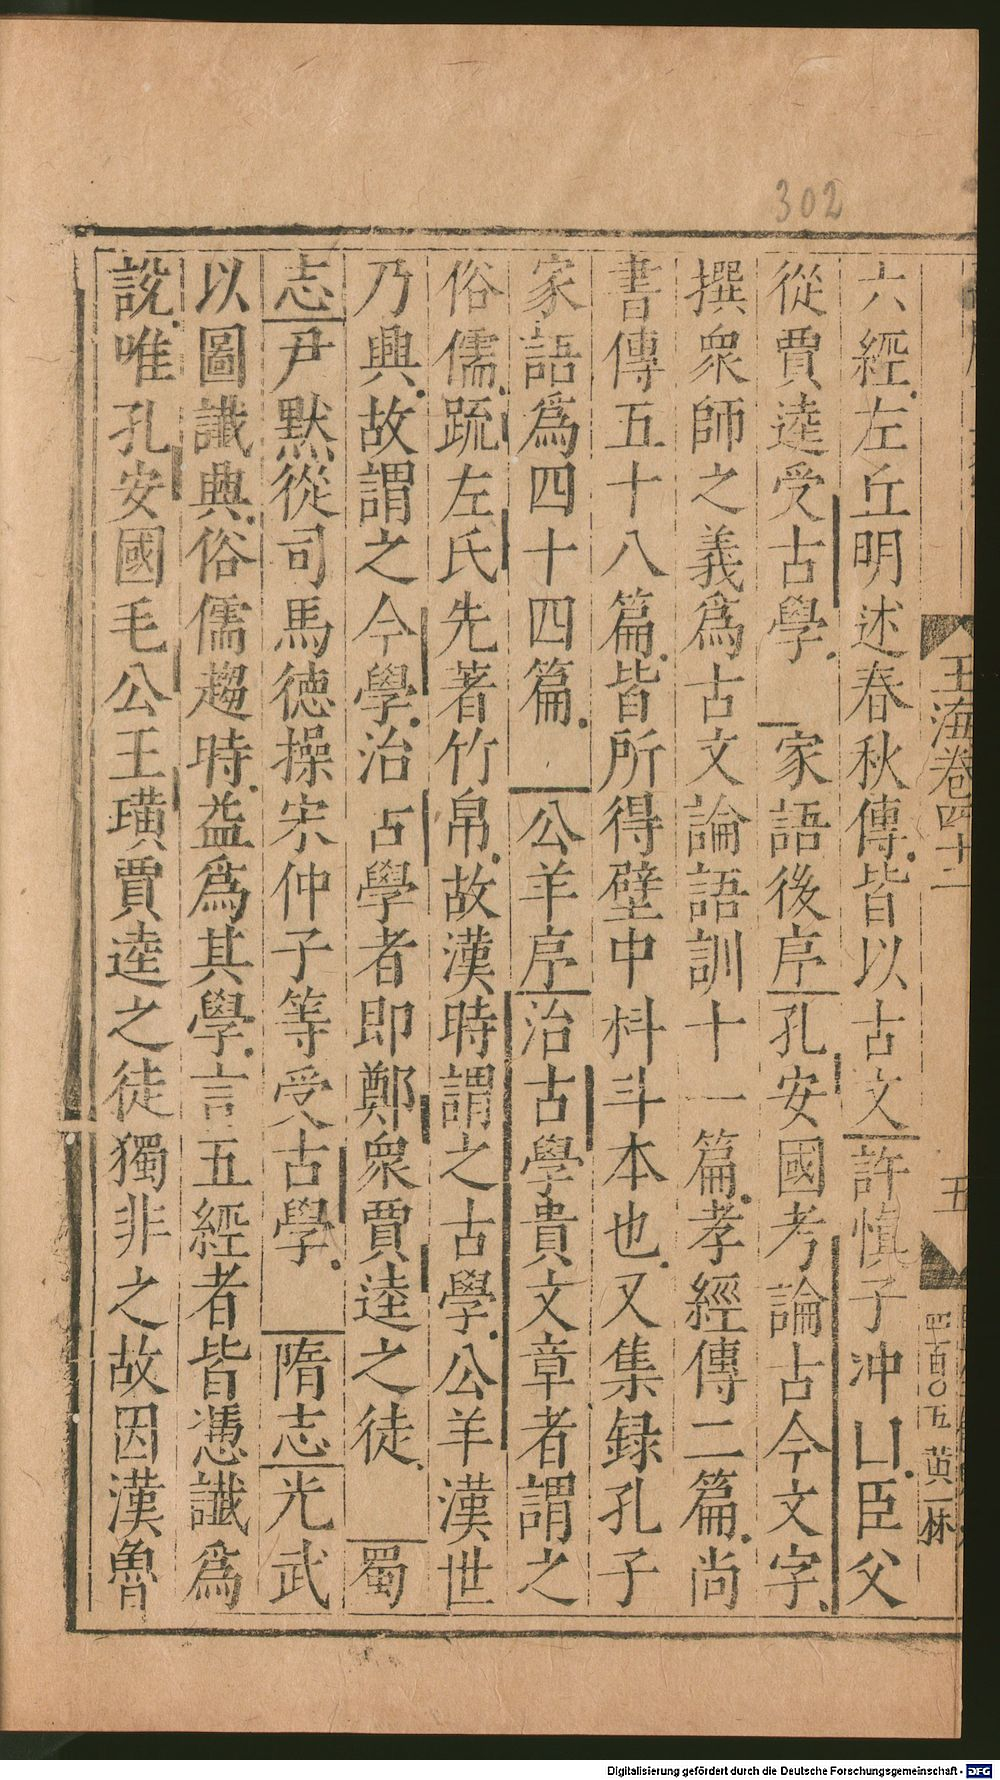 302
六經左丘明述春秋傳皆以古文許慎子沖上臣父
從賈逵受古學 家語後序孔安國考論古今文字
撰衆師之義爲古文論語訓十一篇孝經傳二篇尚
書傳五十八篇皆所得壁中科斗本也又集録孔子
家語爲四十四篇 公羊序治古學貴文章者謂之
俗儒疏左氏先著竹帛故漢時謂之古學公羊漢世
乃興故謂之今學治古學者即鄭衆賈逵之徒 蜀
志尹默從司馬德操宋仲子等受古學 隋志光武
以圖讖興俗儒趨時益爲其學言五經者皆憑讖爲
說唯孔安國毛公王璜賈逵之徒獨非之故因漢魯
玉海卷四十二
五
四百〇五 黄
Digitalisierung gefördert durch die Deutsche Forschungsgemeinschaft - DFG